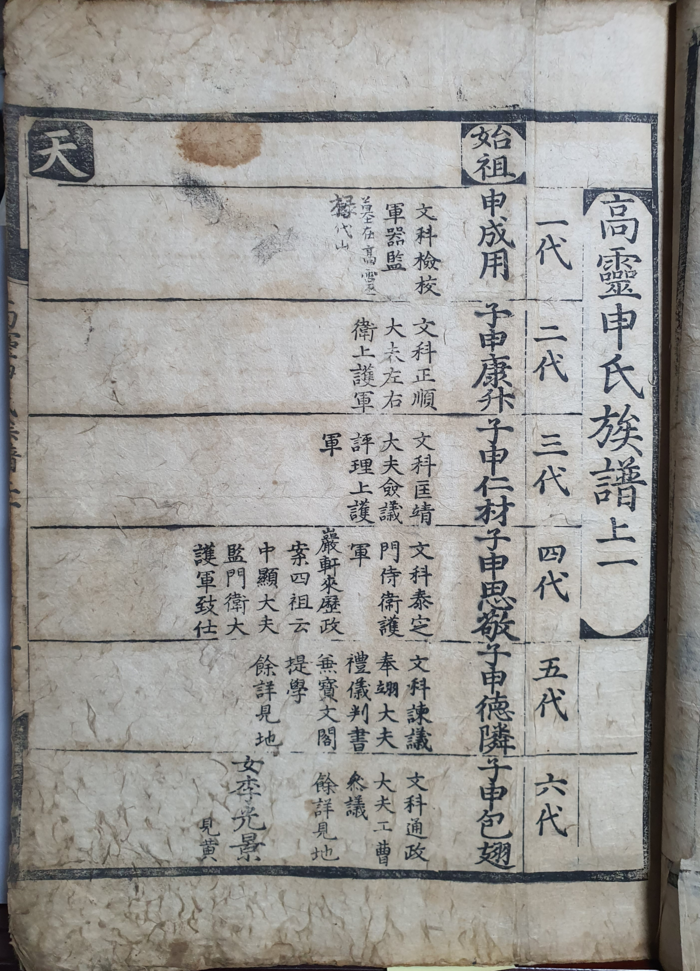 高靈申氏族譜上一
一代
二代
三代
四代
五代
六代
始祖
申成用
文科檢校
軍器監
墓在高靈
子申康升
文科正順
大夫左右
衛上護軍
子申仁材
文科匡靖
大夫僉議
評理上護
軍
子申思敬
文科泰定
門侍衛護
軍
巖軒來歷政
案四祖云
中顯大夫
監門衛大
護軍致仕
子申德隣
文科諫議
奉翊大夫
禮儀判書
兼寶文閣
提學
餘詳見地
子申包翅
文科通政
大夫工曹
叅議
餘詳見地
女李光景
見黃
天